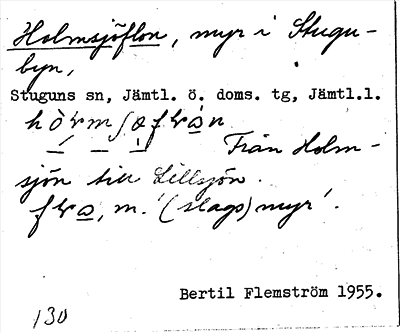 Holmsjöflon, myr i Stugu-
byn,
Stuguns sn, Jämtl. ö. doms. tg, Jämtl.l.
Från Holm-
sjön till Lillsjön.
m. '(slags) myr'.
Bertil Flemström 1955.
130